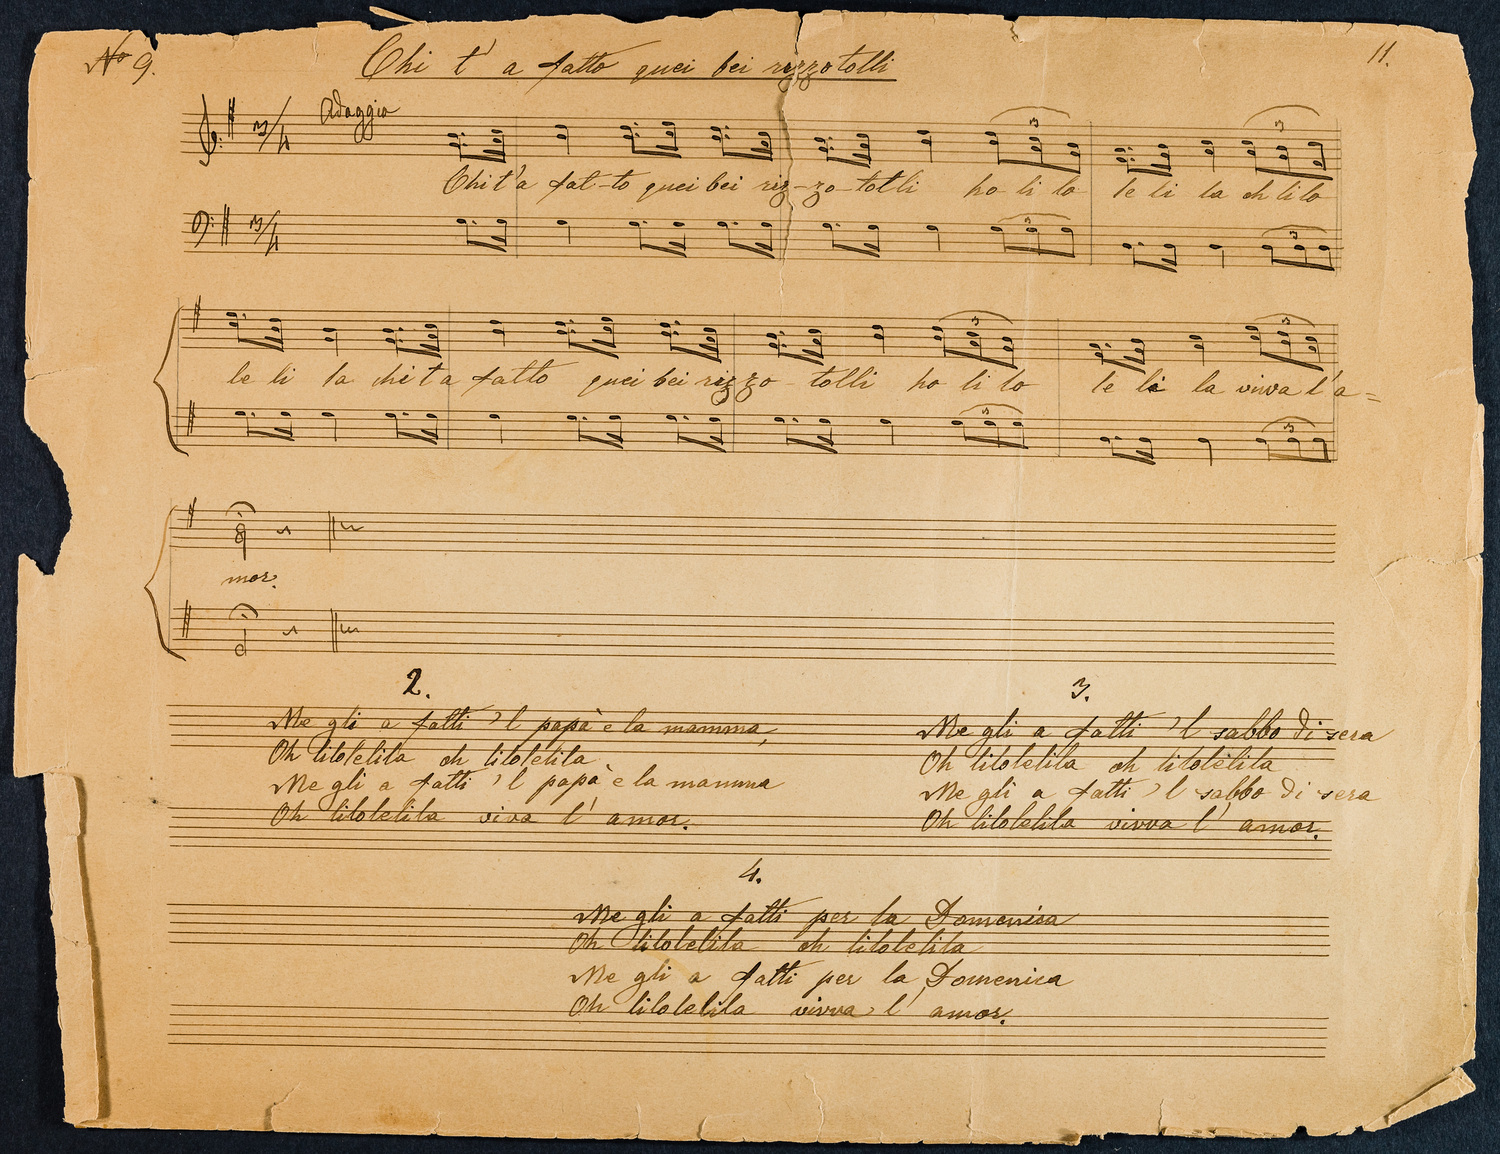 No 9.
Chi t' a fatto quei bei rizzotolli
11.
Adagio
3/4
3
3
Chi t'a fat-to quei bei riz-zo-tolli ho li lo le li la oh li lo
3/4
3
3
3
3
le li la chi t a fatto quei bei rizzo-tolli ho li lo le li la viva l'a=
3
3
mor.
2.
Me gli a fatti 'l papà e la mamma,
Oh lilolelila oh lilolelila
Me gli a fatti 'l papà e la mamma
Oh lilolelila viva l' amor.
3.
Me gli a fatti 'l sabbo di sera
Oh lilolelila oh lilolelila
Me gli a fatti 'l sabbo di sera
Oh lilolelila vivva l' amor.
4.
Me gli a fatti per la Domenica
Oh lilolelila oh lilolelila
Me gli a fatti per la Domenica
Oh lilolelila vivva l' amor.